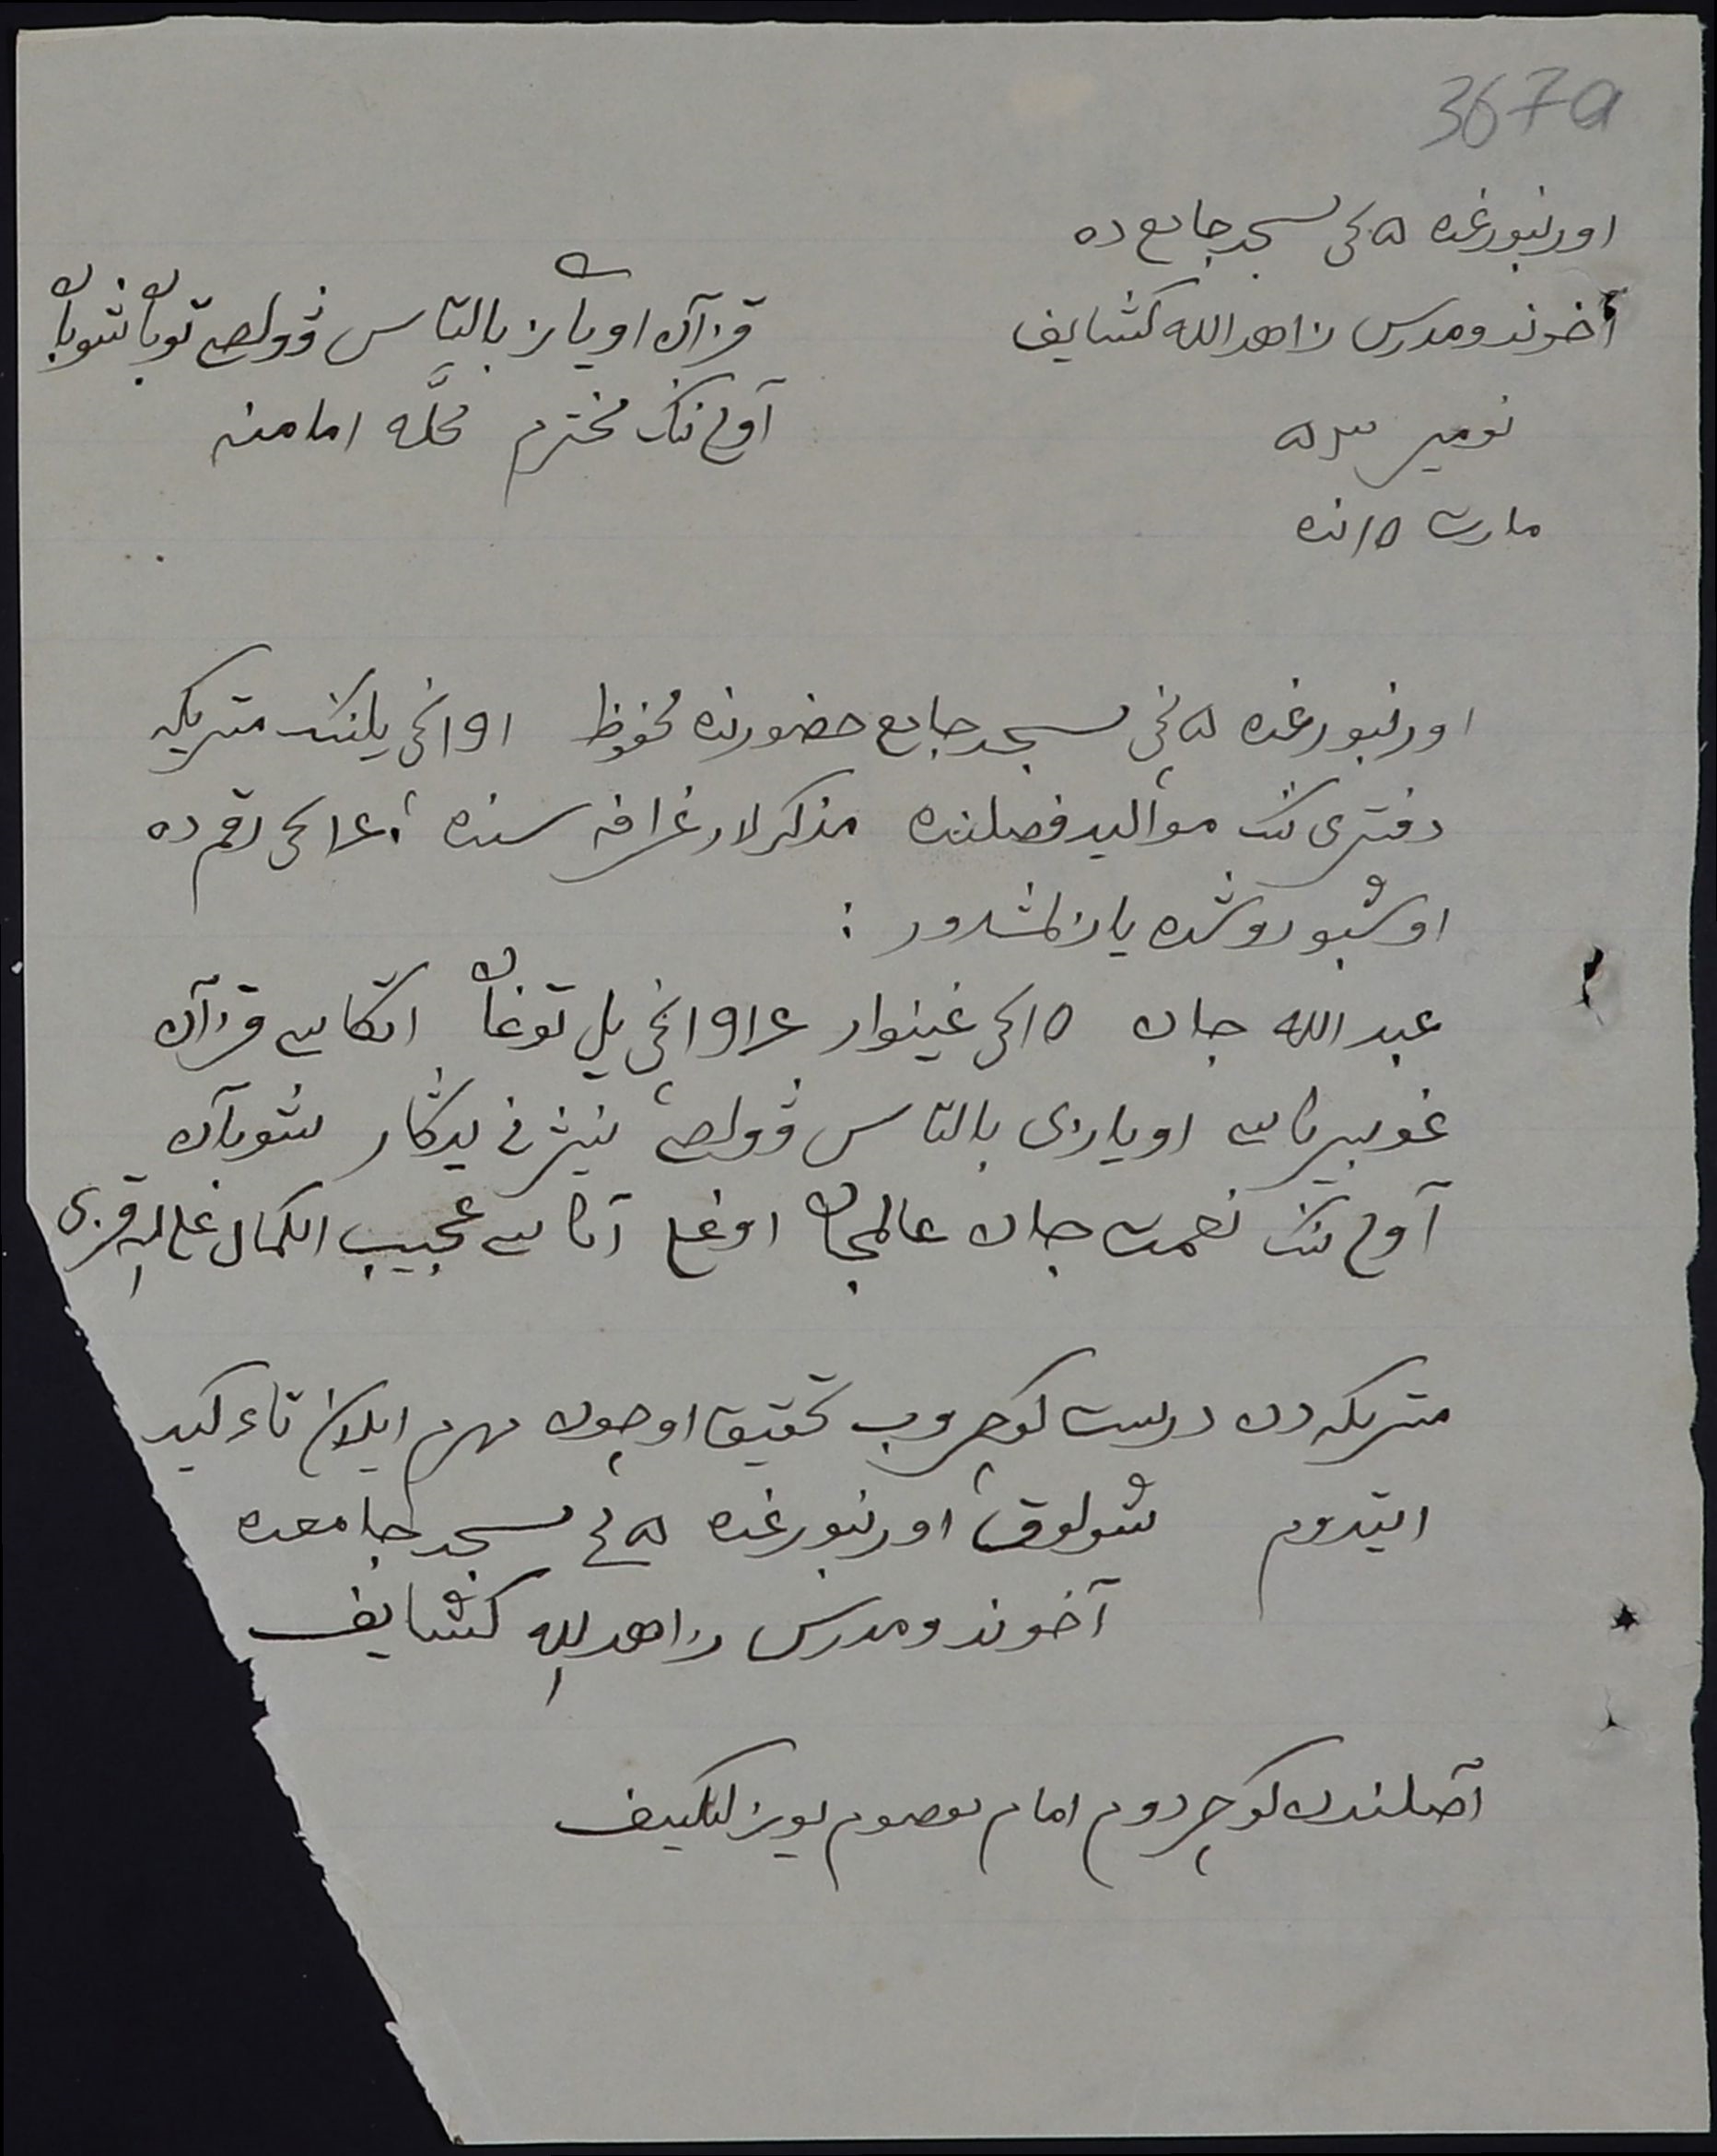 367а
اورنبورغده ۵ نچی مسجد جامع ده
آخوند ومدرس زاهدالله کشایف
نومیر ۵۳
مارت ۱۵نده
قزان اویازی بالتاس وولصی توبان شوبان
آول ننک محترم محله امامنه
اورنبورغده ۵ نچی مسجد جامع حضورنده محفوظ ۱۹۱ نچی یلننک متریکه
دفتری ننک موالید فصلنده مذکرلار غرافه سنده ۱۴ نچی رقم ده
اوشبو روشده یازلمشدور :
عبد الله جان ۱۵ نچی غینوار ۱۹۱۴ نچی یل توغان اتکاسی قزان
غوبیرناسی اویازی بالتاس وولصی نیژنی یدکار شوبان
آول ننک نعمت جان عالمجان اوغلی آناسی عجیب الکمال قزی
متریکه دن درست کوچروب تحقیق اوچون مهرم ایلان تاءکید
ایتدوم شولوق اورنبورغده ۵ نچی مسجد جامعده
آخوند ومدرس زاهدالله کشایف
آصلندن کوچردوم امام معصوم